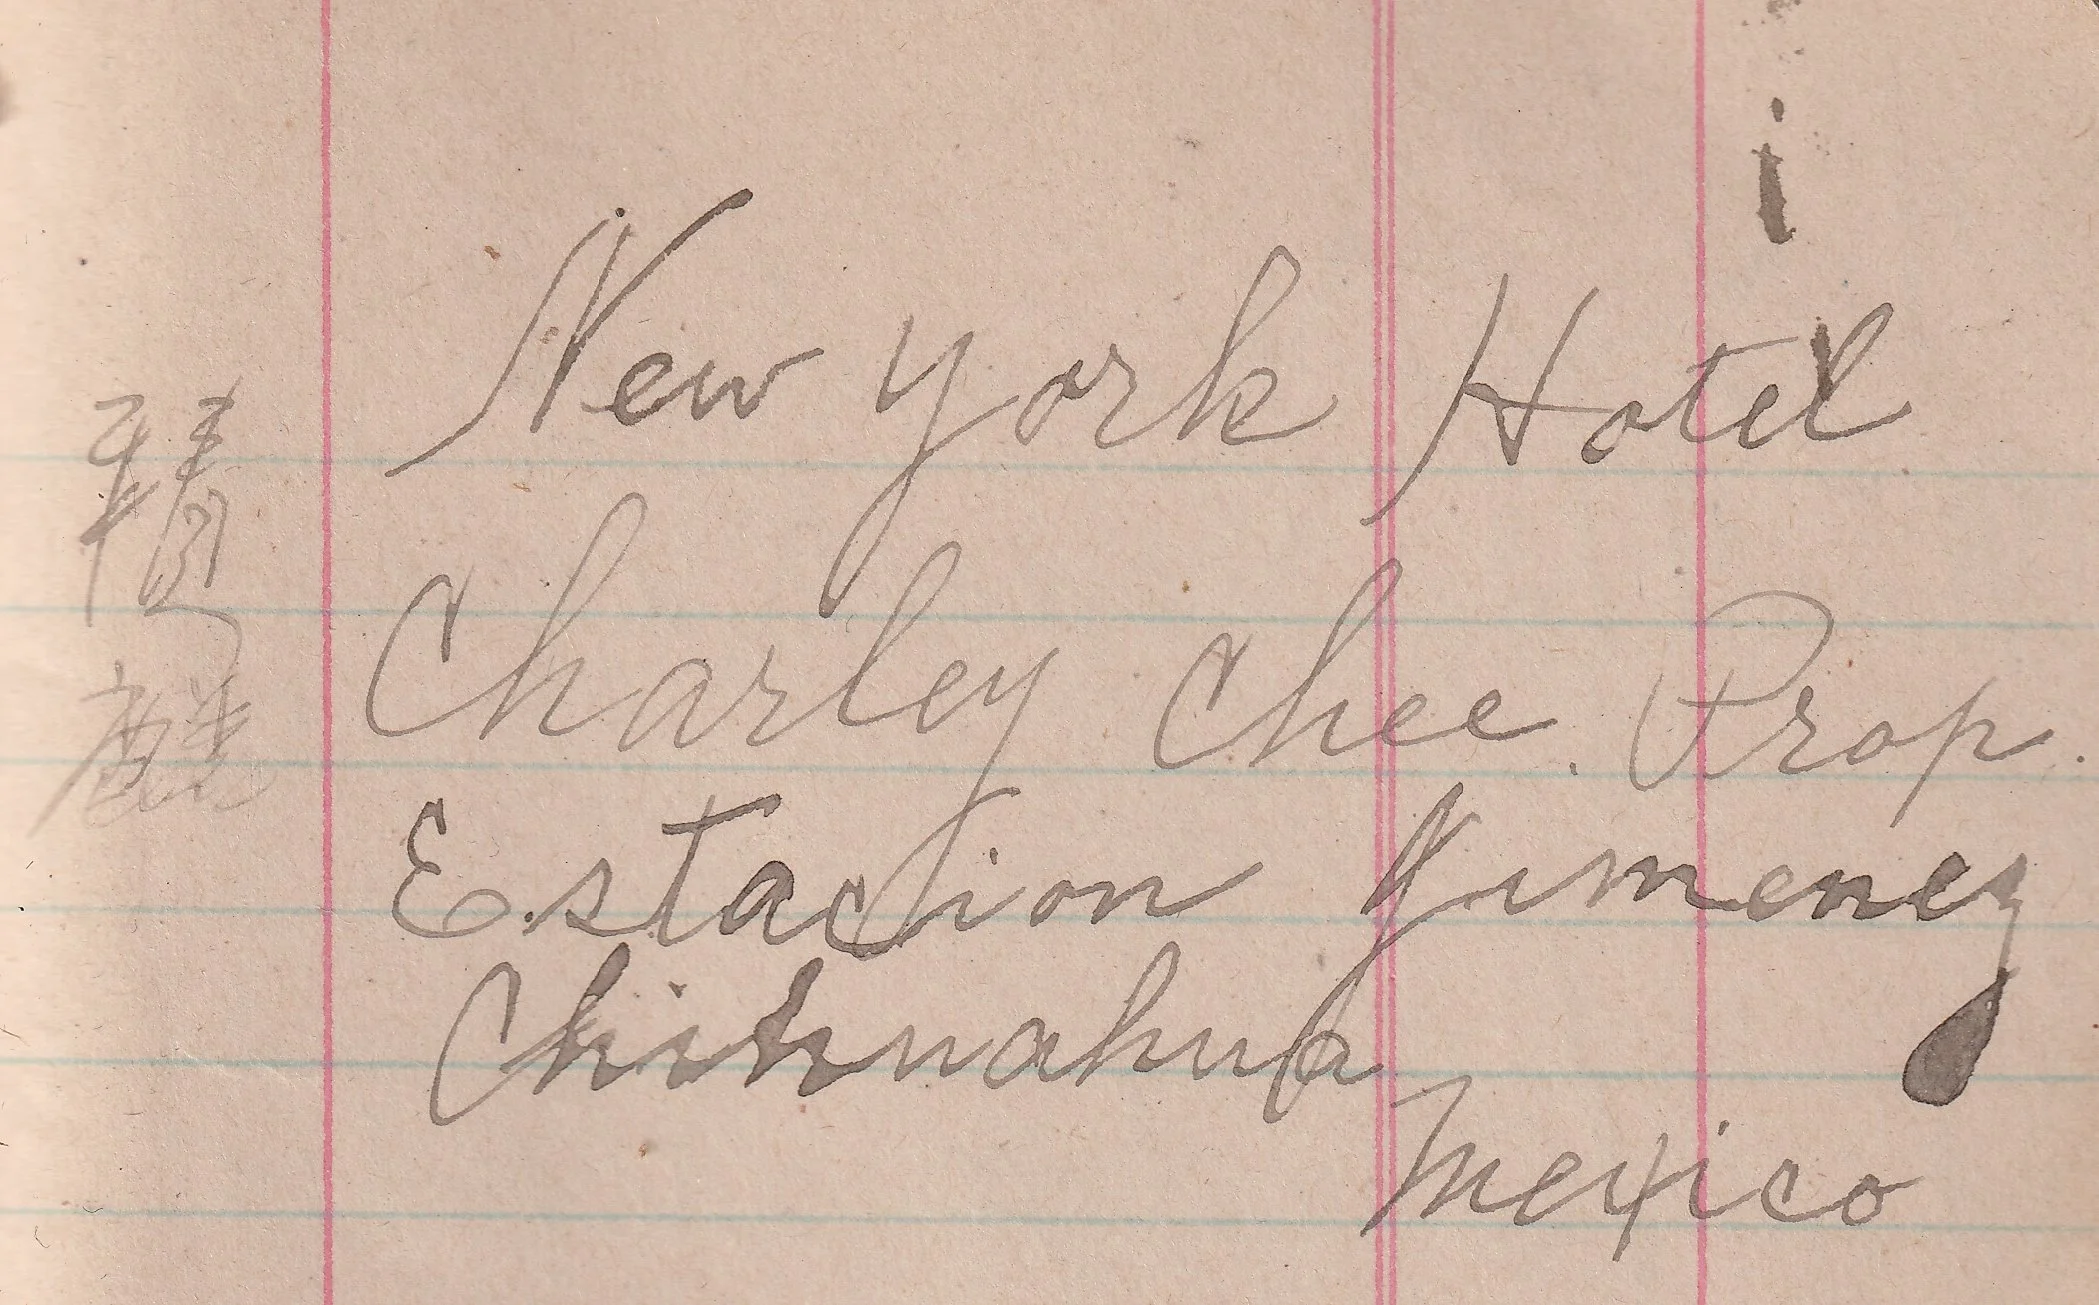 New York Hotel
Charley Chee. Prop.
Estacion Jimenez
Chihuahua
Mexico